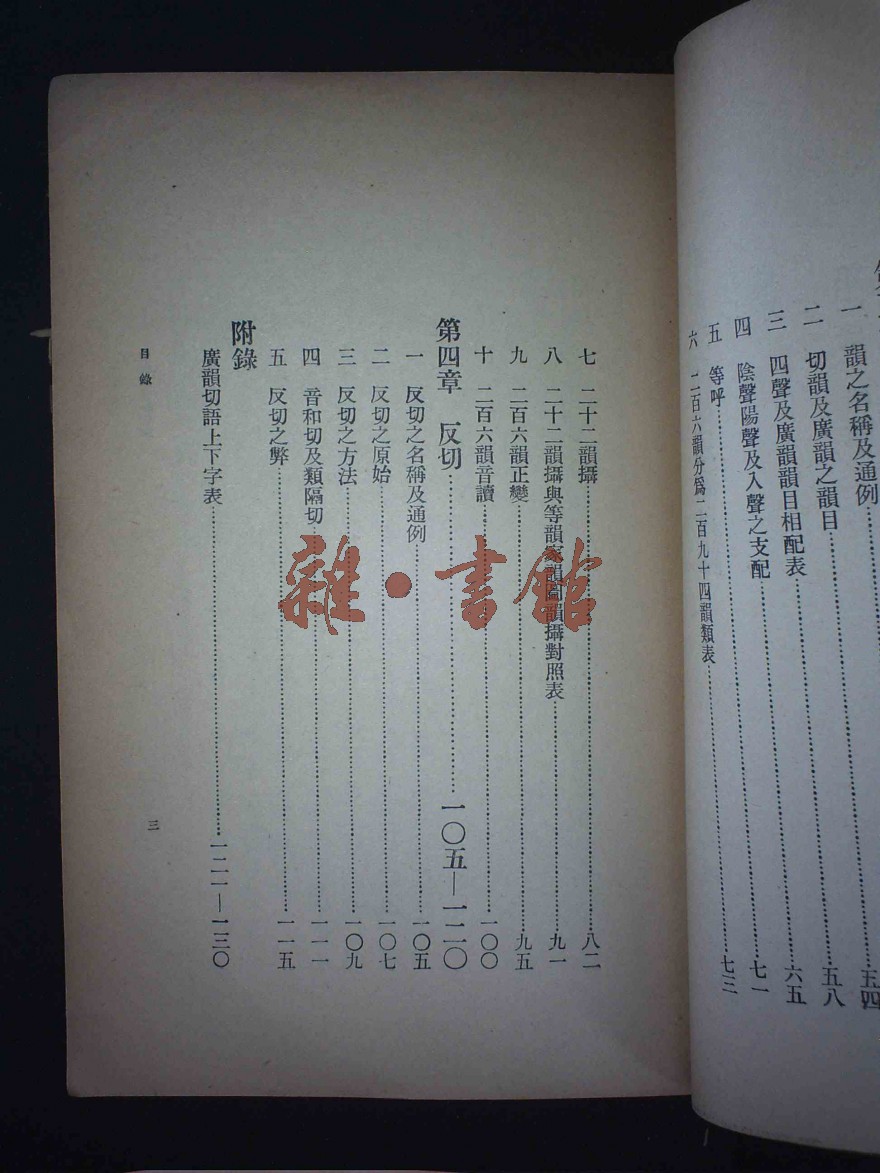 一　韻之名稱及通例………五四
二　切韻及廣韻之韻目………五八
三　四聲及廣韻韻目相配表………六五
四　陰聲陽聲及入聲之支配………七一
五　等呼………七三
六　二百六韻分爲二百九十四韻類表
七　二十二韻攝………八二
八　二十二韻攝與等韻家韻圖韻攝對照表………九一
九　二百六韻正變………九五
十　二百六韻音讀………一〇〇
第四章　反切………一〇五—一二〇
一　反切之名稱及通例………一〇五
二　反切之原始………一〇七
三　反切之方法………一〇九
四　音和切及類隔切………一一一
五　反切之弊………一一五
附錄
廣韻切語上下字表………一二一—一三〇
目錄
三
雜·書館